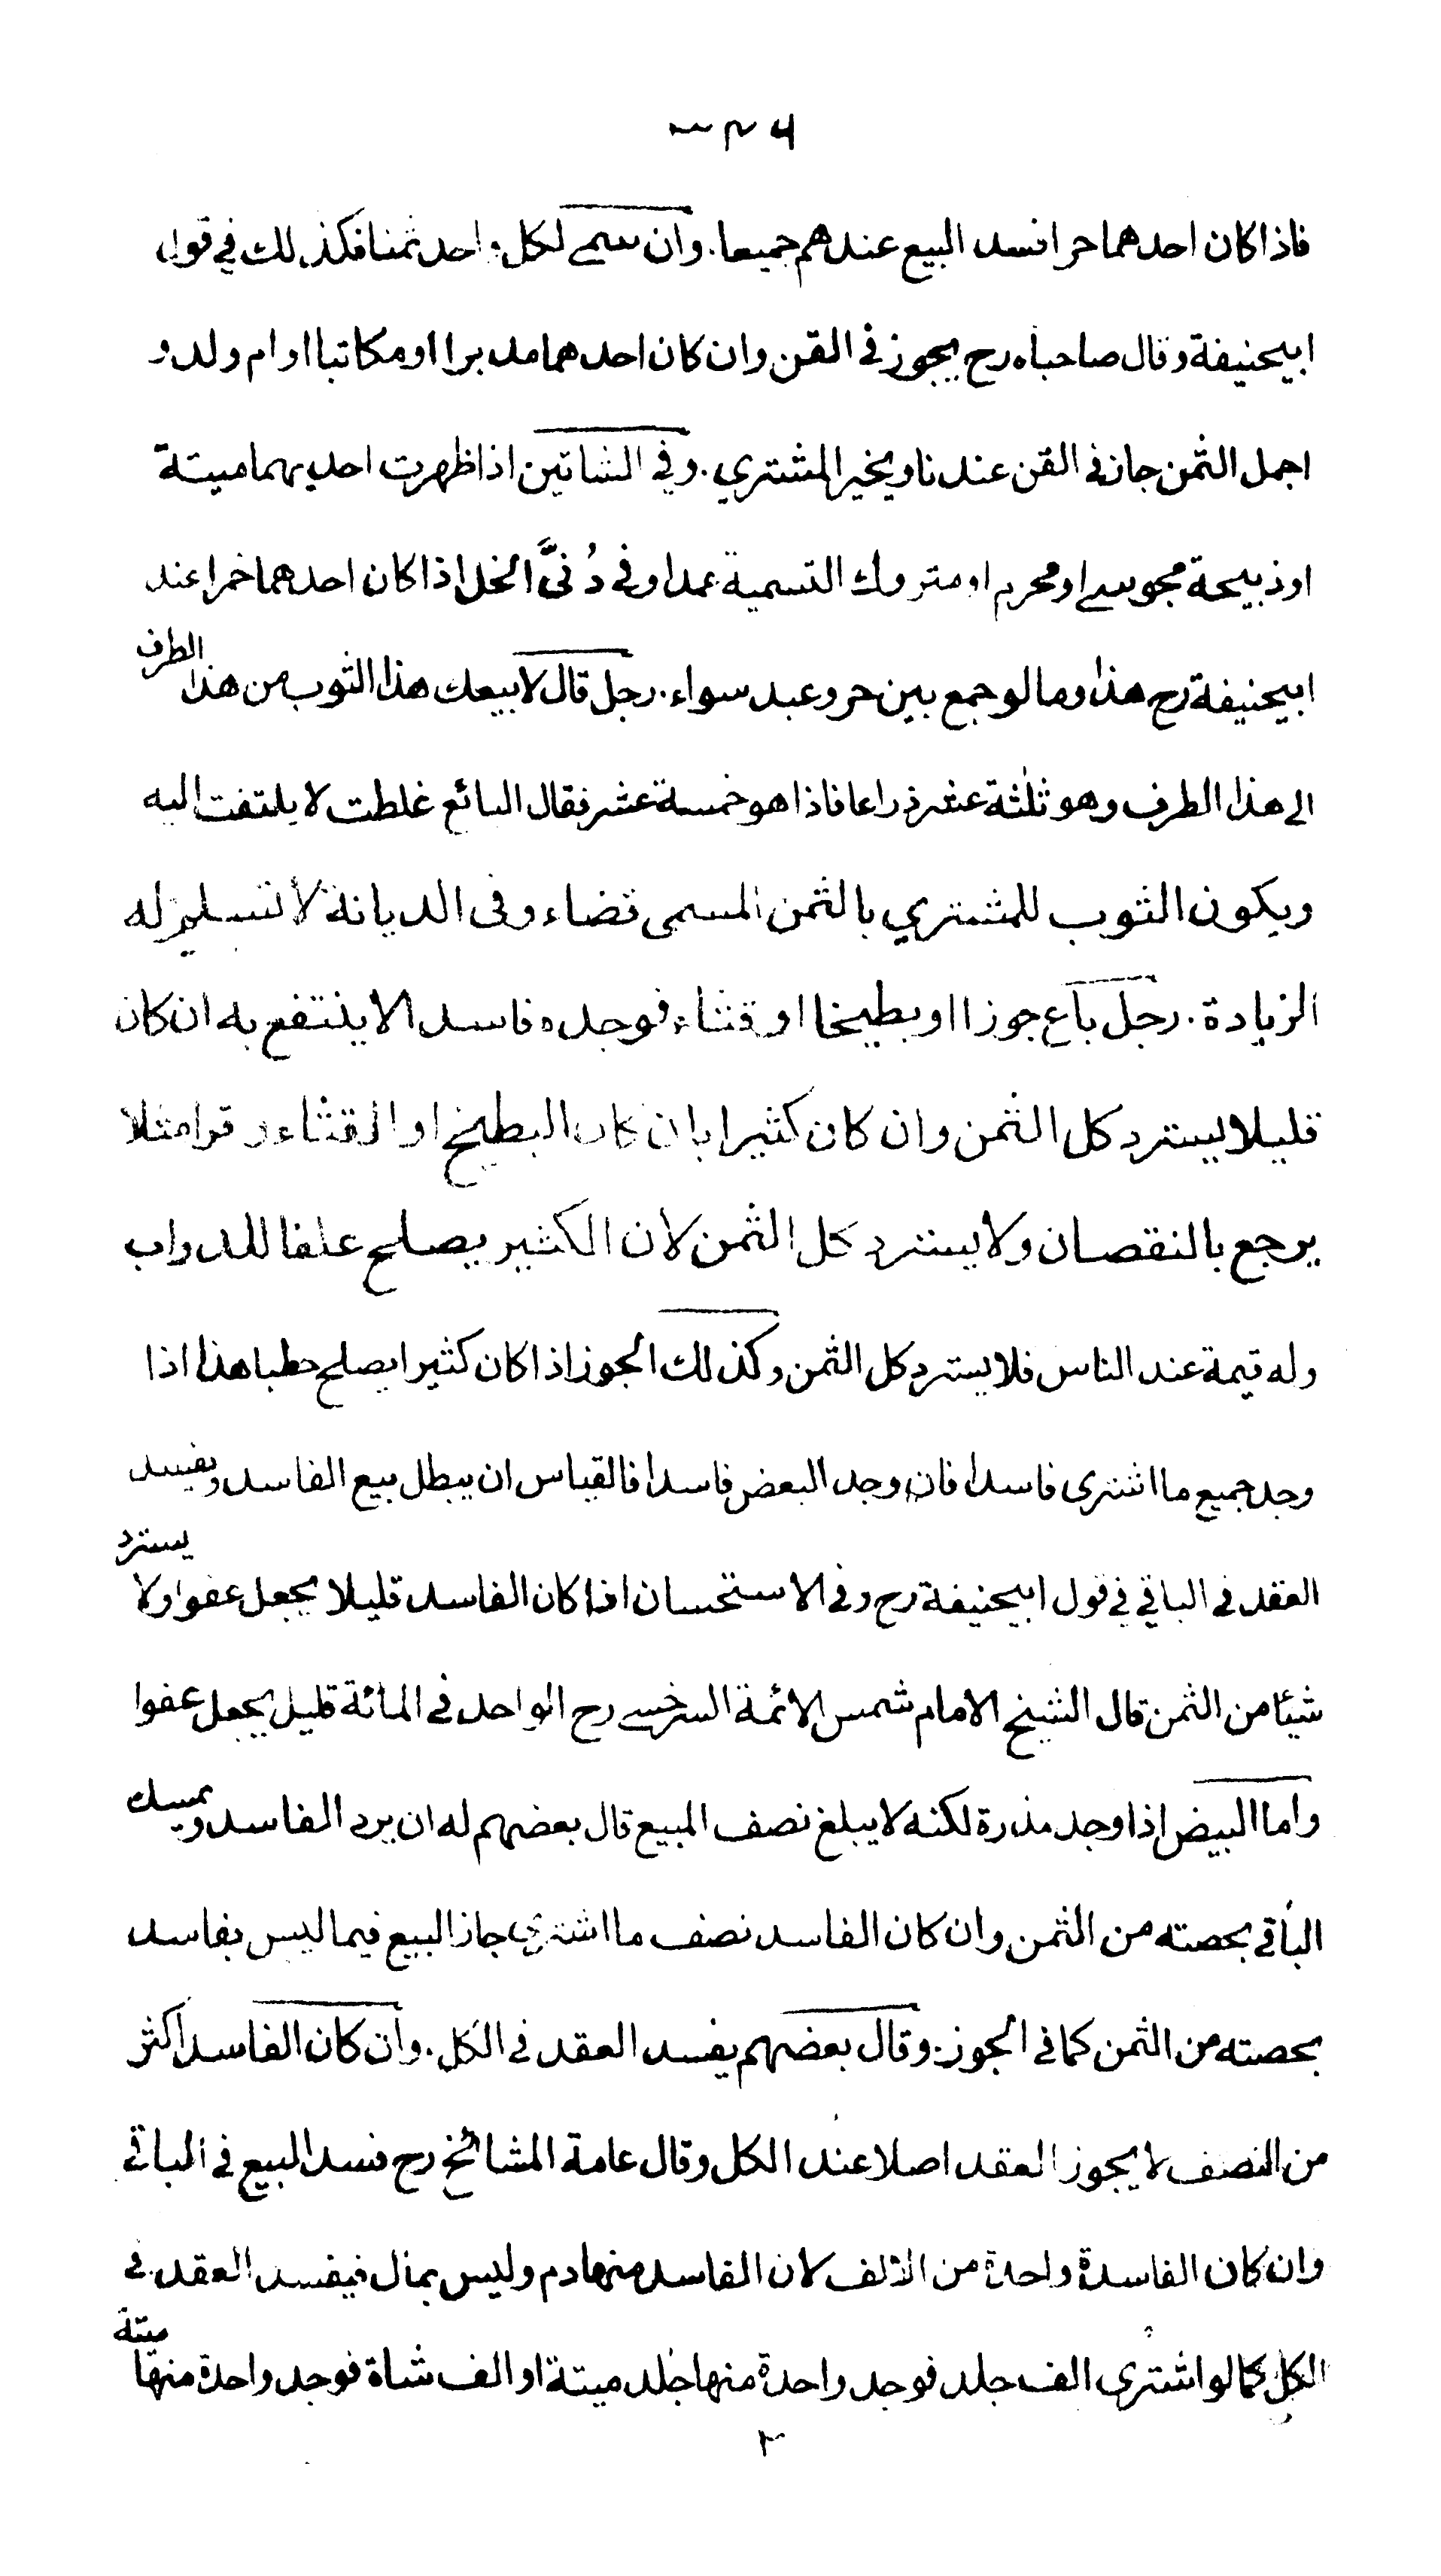 فاذا كان احدهما حرا فسد البيع عندهم جميعا. وان سمى لكل واحد ثمنا فكذلك في قول
ابيحنيفة وقال صاحباه رح يجوز في القن وان كان احدهما مدبرا او مكاتبا او ام ولد و
اجمل الثمن جاز في القن عندنا ويخير المشتري. وفي الشاتين اذا ظهرت احديهما ميتة
او ذبيحة مجوسي او محرم او متروك التسمية عمدا وفي دُنَّي الخل اذا كان احدهما خمرا عند
ابيحنيفة رح هذا وما لو جمع بين حر وعبد سواء. رجل قال لابيعك هذا الثوب من هذا الطرف
الى هذا الطرف وهو ثلثة عشر ذراعا فاذا هو خمسة عشر فقال البائع غلطت لا يلتفت اليه
ويكون الثوب للمشتري بالثمن المسمى قضاء وفى الديانة لا تسلم له
الزيادة. رجل باع جوزا او بطيخا او قثاء فوجده فاسدا لا ينتفع به ان كان
قليلا يسترد كل الثمن وان كان كثيرا بان كان البطيخ او القثاء وقرا مثلا
يرجع بالنقصان ولا يسترد كل الثمن لان الكثير يصلح علفا للدواب
وله قيمة عند الناس فلا يسترد كل الثمن وكذلك الجوز اذا كان كثيرا يصلح حطبا هذا اذا
وجد جميع ما اشترى فاسدا فان وجد البعض فاسدا فالقياس ان يبطل بيع الفاسد ويفسد
العقد في الباقي في قول ابيحنيفة رح وفى الاستحسان اذا كان الفاسد قليلا يجعل عفوا ولا يسترد
شيئا من الثمن قال الشيخ الامام شمس الائمة السرخسي رح الواحد في المائة قليل يجعل عفوا
واما البيض اذا وجد مذرة لكنه لا يبلغ نصف المبيع قال بعضهم له ان يرد الفاسد ويمسك
الباقي بحصته من الثمن وان كان الفاسد نصف ما اشترى جاز البيع فيما ليس بفاسد
بحصته من الثمن كما في الجوز. وقال بعضهم يفسد العقد في الكل. وان كان الفاسد اكثر
من النصف لا يجوز العقد اصلا عند الكل وقال عامة المشائخ رح فسد البيع في الباقي
وان كان الفاسدة واحدة من الالف لان الفاسد منها دم وليس بمال فيفسد العقد في
الكل كما لو اشترى الف جلد فوجد واحدة منها جلد ميتة او الف شاة فوجد واحدة منها ميتة